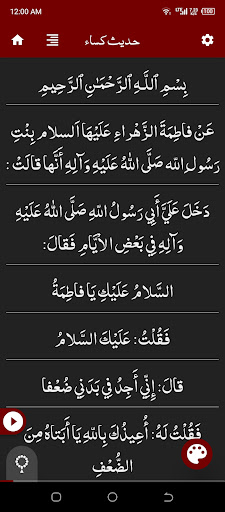 12:00 AM
حدیث کساء
بِسْمِ اللَّهِ الرَّحْمَٰنِ الرَّحِيمِ
عَنْ فاطِمَةَ الزَّهْراءِ عَلَيْهَا السلام بِنْتِ
رَسُولِ اللّهِ صَلَّى اللهُ عَلَيْهِ وَآلِهِ أَنَّها قالَتْ :
دَخَلَ عَلَيَّ أَبِي رَسُولُ اللّهِ صَلَّى اللهُ عَلَيْهِ
وَآلِهِ فِي بَعْضِ الأَيَّامِ فَقالَ:
السَّلامُ عَلَيْكِ يا فاطِمَةُ
فَقُلْتُ: عَلَيْكَ السَّلامُ
قالَ: إِنِّي أَجِدُ فِي بَدَنِي ضُعْفا
فَقُلْتُ لَهُ: أُعِيذُكَ بِاللّهِ يا أَبَتاهُ مِنَ
الضُّعْفِ